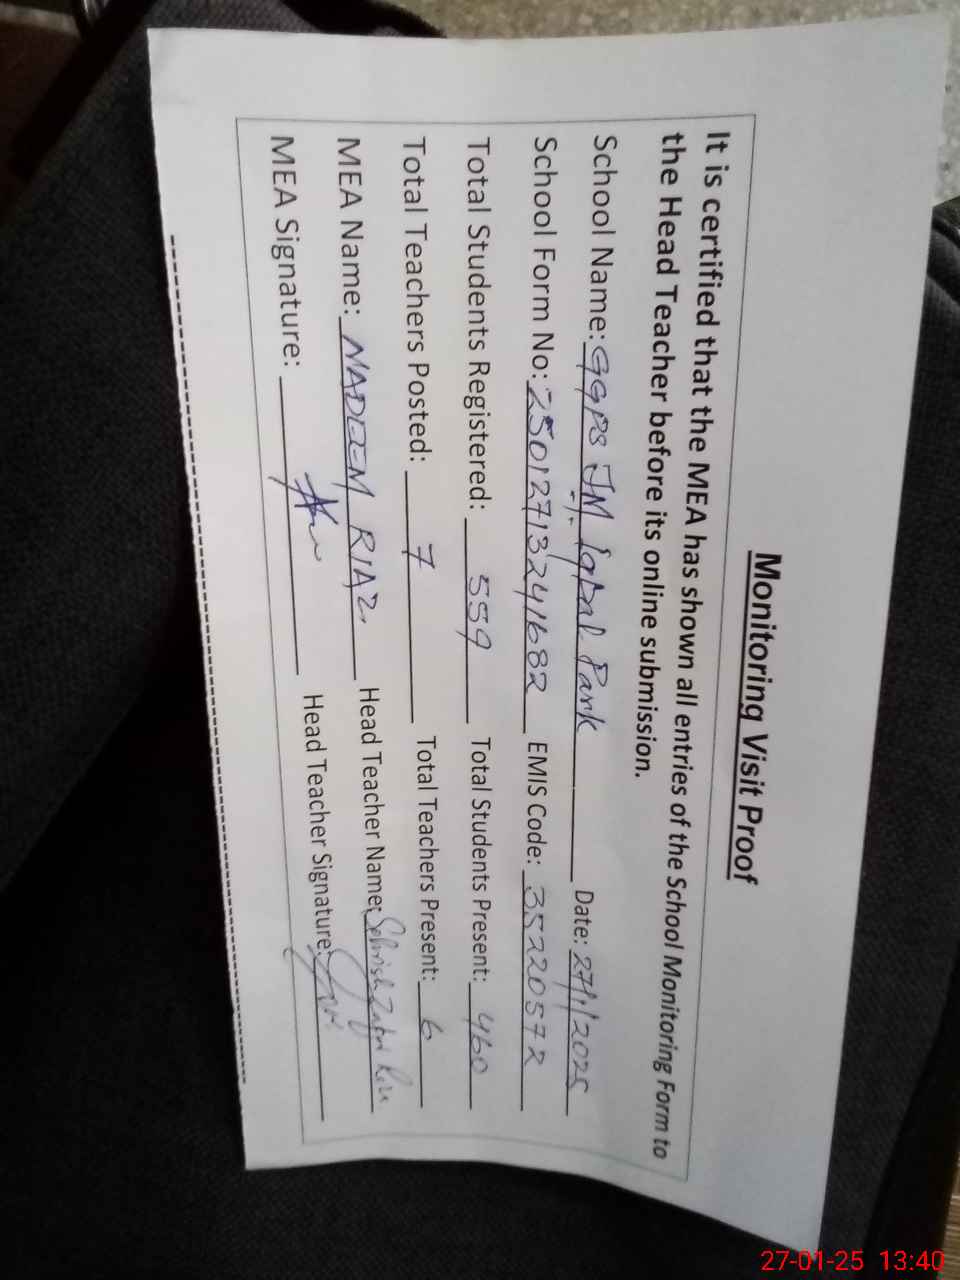 Monitoring Visit Proof
It is certified that the MEA has shown all entries of the School Monitoring Form to
the Head Teacher before its online submission.
School Name: GGPS JM Iqbal Park Date: 27/1/2025
School Form No: 25012713241682 EMIS Code: 35220572
Total Students Registered: 559 Total Students Present: 460
Total Teachers Posted: 7 Total Teachers Present: 6
MEA Name: NADEEM RIAZ Head Teacher Name: Sehrish
MEA Signature: Head Teacher Signature:
27-01-25 13:40